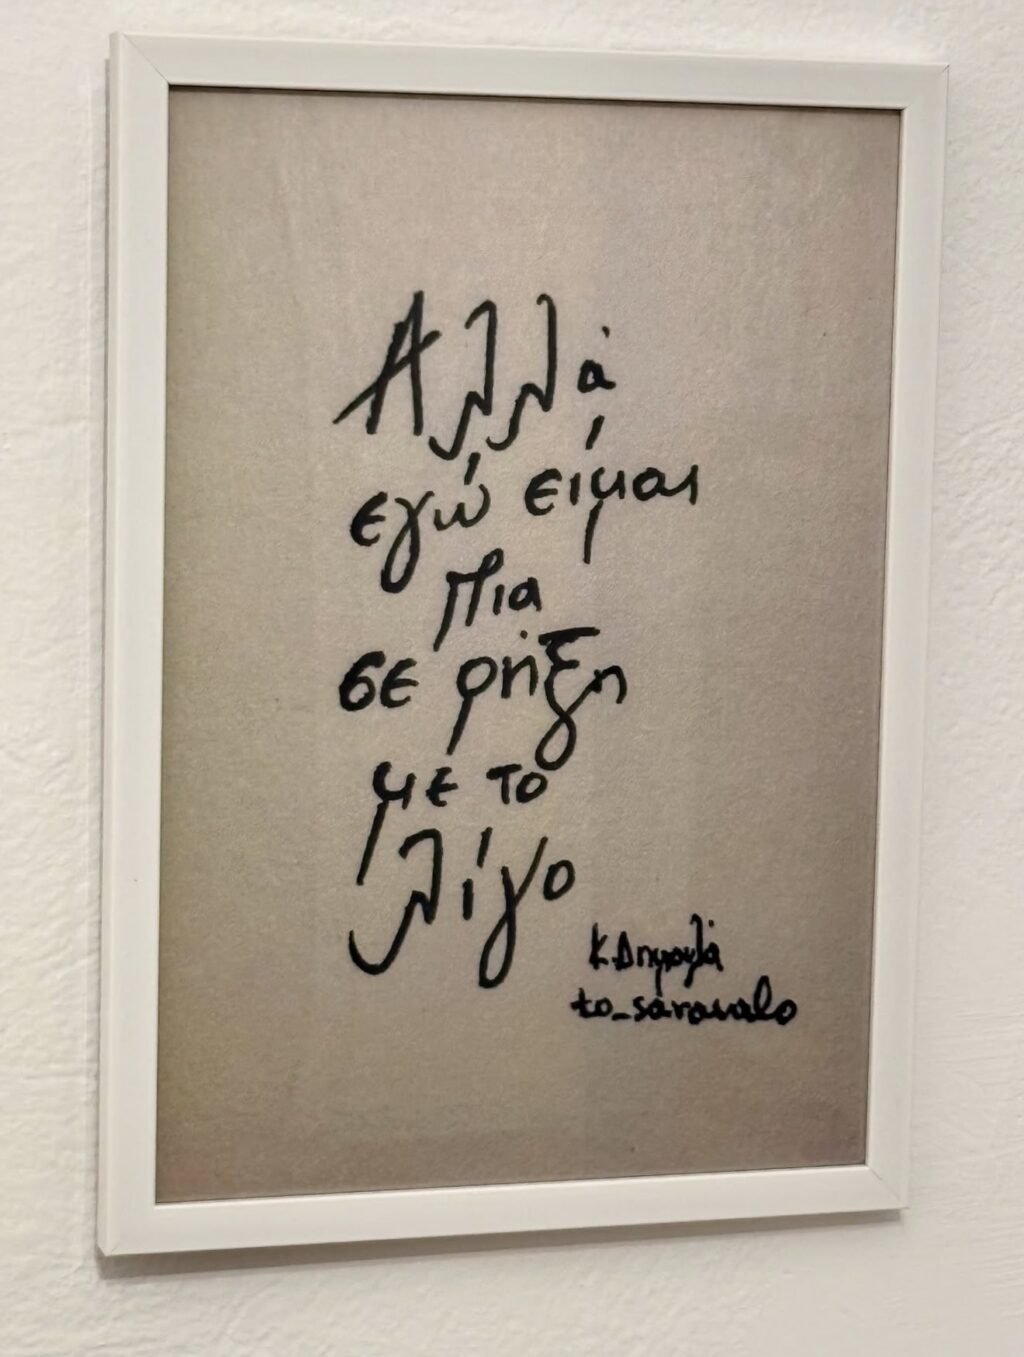 Αλλά
εγώ είμαι
πια
σε ρήξη
με το
λίγο
Κ. Δημουλά
to_saravalo